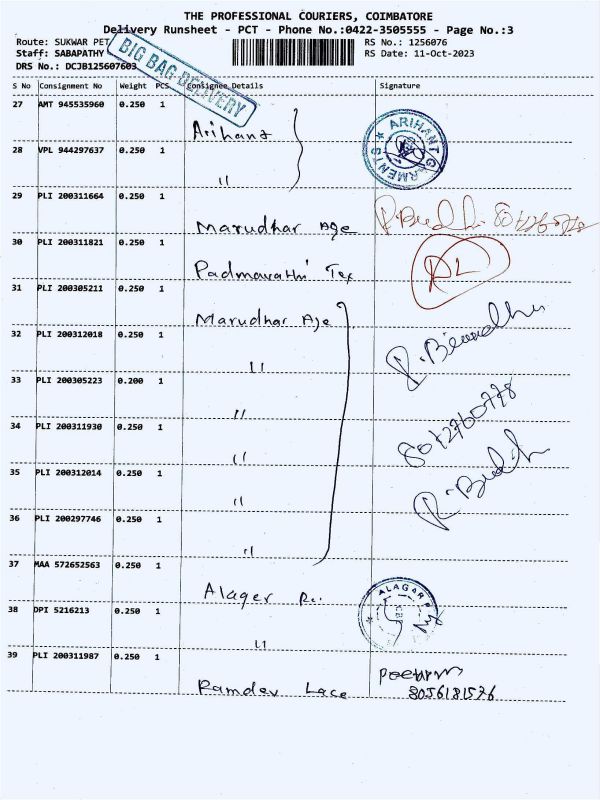 THE PROFESSIONAL COURIERS, COIMBATORE
Delivery Runsheet - PCT - Phone No.:0422-3505555 - Page No.:3
Route: SUKWAR PET RS No.: 1256076
Staff: SABAPATHY RS Date: 11-Oct-2023
DRS No.: DCJB125607603
BIG BAG DELIVERY
S No Consignment No Weight PCS Consignee Details Signature
27 AMT 945535960 0.250 1
Arihant
ARIHANT GARMENTS
28 VPL 944297637 0.250 1
"
29 PLI 200311664 0.250 1
Marudhar Age
30 PLI 200311821 0.250 1
Padmavathi Tex
31 PLI 200305211 0.250 1
Marudhar Age
32 PLI 200312018 0.250 1
"
33 PLI 200305223 0.200 1
"
34 PLI 200311930 0.250 1
"
8072760778
35 PLI 200312014 0.250 1
"
36 PLI 200297746 0.250 1
"
37 MAA 572652563 0.250 1
Alager
ALAGAR
38 DPI 5216213 0.250 1
"
39 PLI 200311987 0.250 1
Ramdev Lace
8056181576